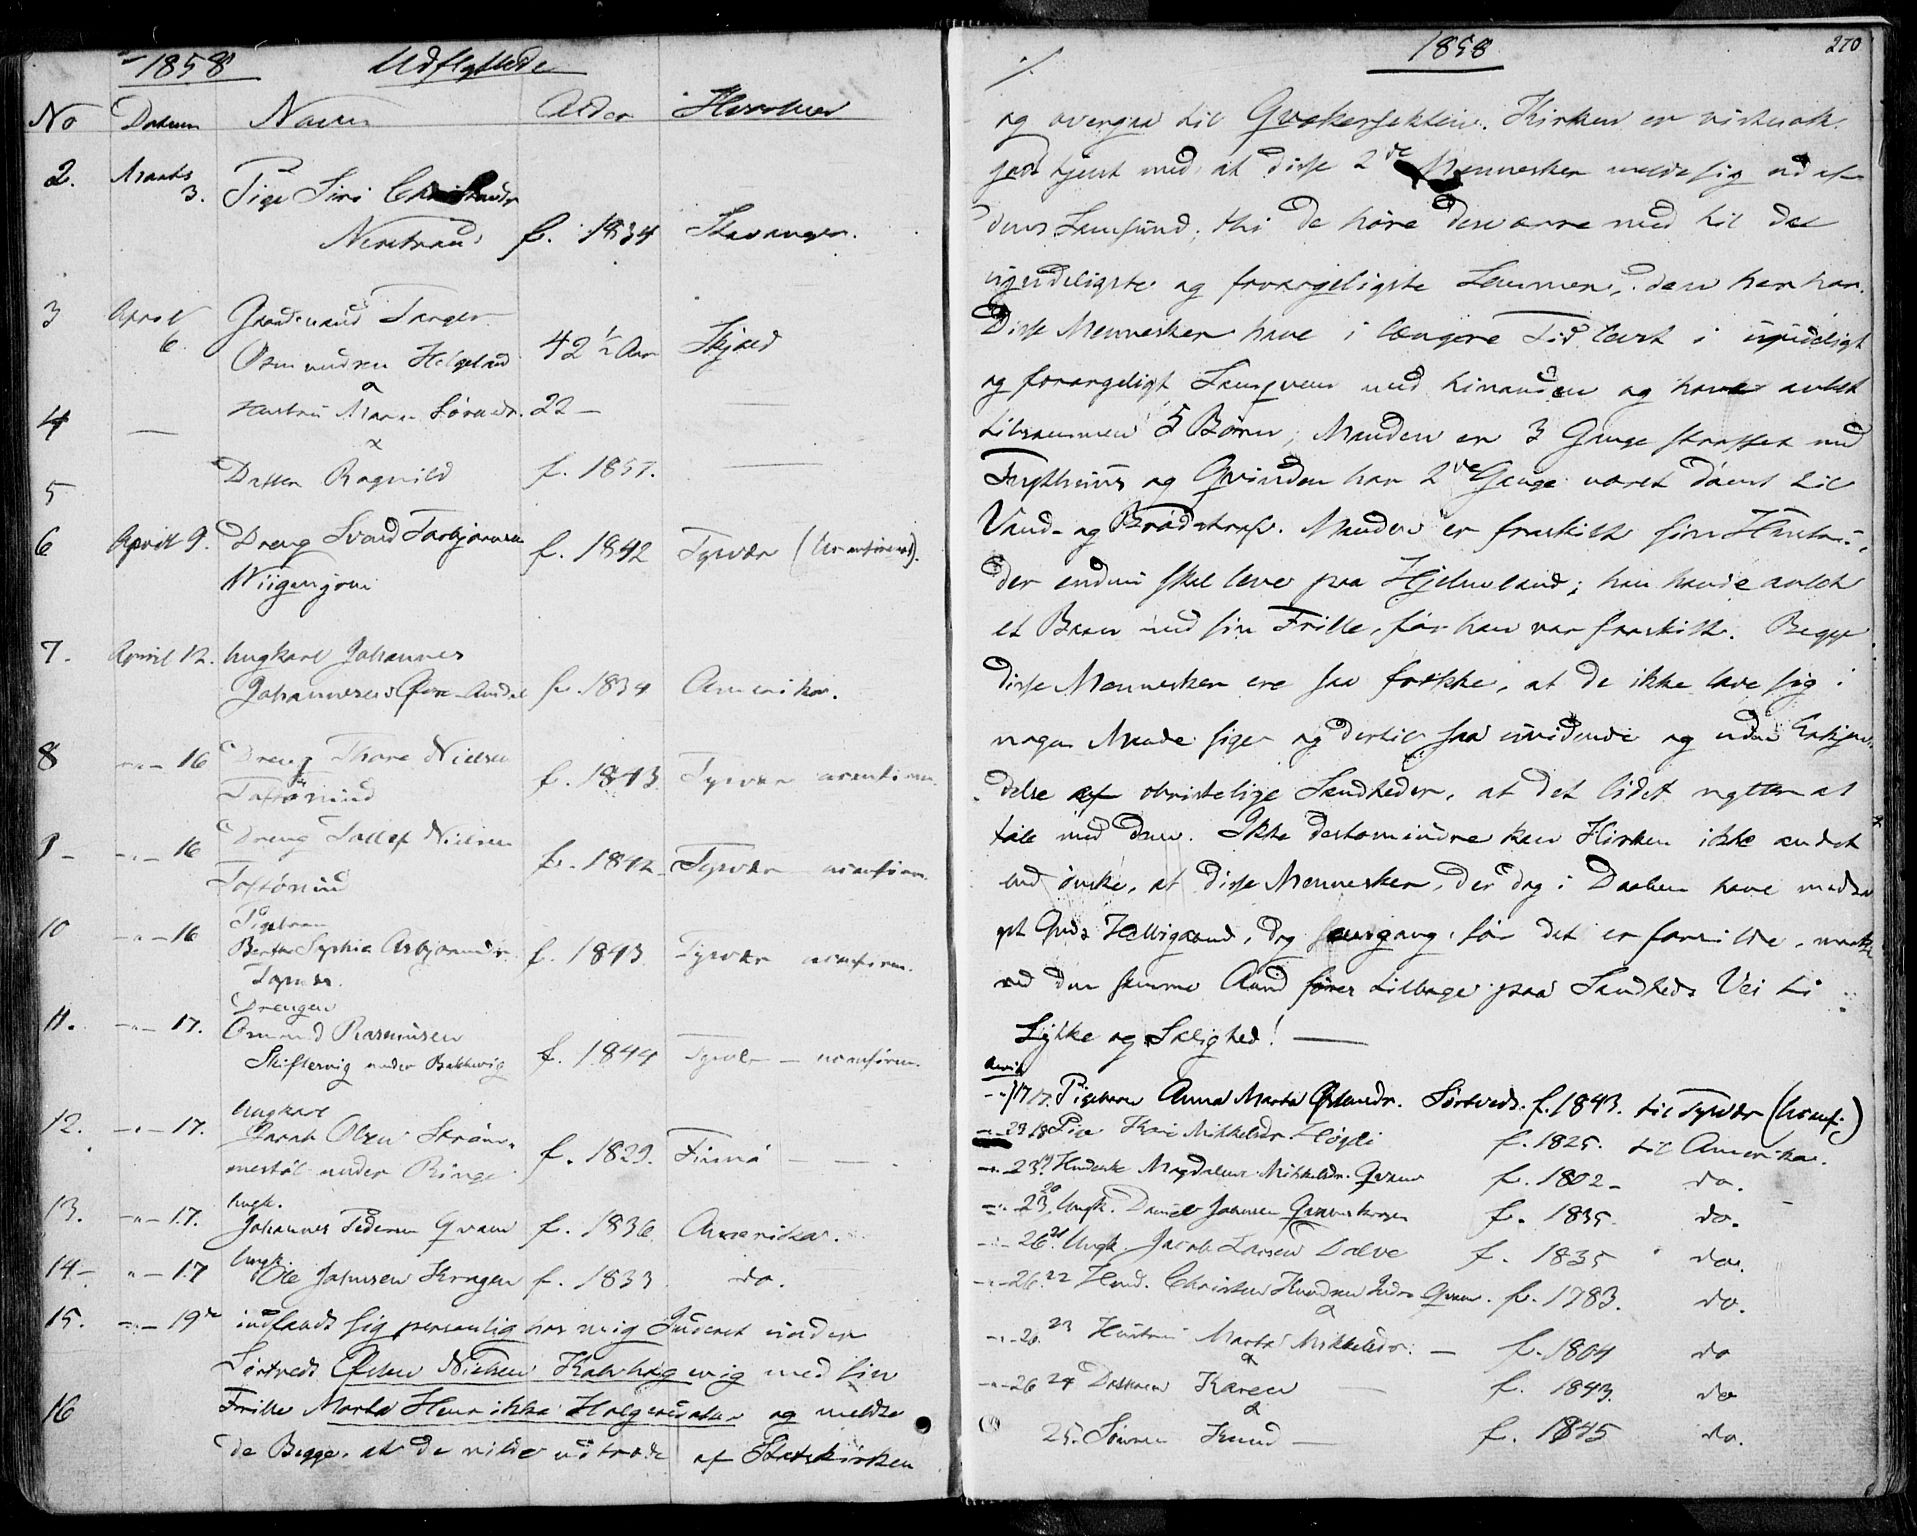 1858 Udflyttede
No Datum Navn Alder Hvorhen
2. Marts 3. Pige Siri
Nerstrand f. 1834 Stavanger.
3 April 6. Gaardmand Torger
Osmundsen Helgeland 42 1/2 Aar Skjold
4 — Hustru Maren Sørensdr. 22 — —
&
5 Datter Ragnild f. 1857. —
6 April 9. Dreng Svend Torbjørnsen f. 1842 Tysvær (
7. April 12. Ungkarl Johannes
Johannesen Øvre-Amdal f. 1834 Amerika.
8 -"- 16 Dreng Thore Nielsen
f. 1843. Tysvær
9 - -"- 16 Dreng Nielsen
f. 1842. Tysvær
10 -"- 16 Pigebarn
Berta Sophia Asbjørnsdr. f. 1843 Tysvær
11. -"- 17. Drengen
Rasmusen
Skiftesvig under f. 1844 Tysvær —
12. -"- 17. Ungkarl
Olsen Strøm-
mestøl under Ringe f. 1829. Finnø — —
13. -"- 17. Ungk.
Johannes Pedersen Qvam f. 1836. Amerika.
14 - "- 17 Ungk.
Ole Johnsen Krogen f. 1833 do.
15. -"- 19de indfandt sig personlig hos mig Inderst under
Sørtveds Østen Nielsen med sin
16 Frille Marta Henrikke Holgersdatter og meldte
de Begge, at de vilde udtræde af Statskirken
1858 270
og overgaa til Qvækersekten. Kirken er vistnok
tjent med, at disse 2de Mennesker melde sig ud af
dens Samfund, thi de høre desværre med til det
ugudeligste og forargeligste Lemmer, den her har.
Disse Mennesker have i længere Tid levet i ugudeligt
og forargeligt Samqvem med hinanden og have avlet
tilsammen 5 Børn, Manden er 3 Gange straffet med
Tugthuus og Qvinden har 2de Gange været dømt til
Vand- og Brødstraf. Manden er fraskilt sin Hustru,
der endnu skal leve paa Hjelmeland; han havde avlet
et Barn med sin Frille, før han var fraskilt. Begge
disse Mennesker ere saa frække, at de ikke lade sig i
nogen Maade sige og dertil saa uvidende og uden Erkjen-
delse af christelige Sandheder, at det lidet nytter at
tale med dem. Ikke destomindre kan Kirken ikke andet
end ønske, at disse Mennesker, der dog i Daaben have modta-
get Guds Helligaand, dog engang, før det er forsilde, maatte
ved den samme Aand føres tilbage paa Sandheds Vei til
Lykke og Salighed! —
April
-"- 17 17. Pigebarn Anna Marta Sørtveds. f. 1843. til Tysvær
-"- 23 18 Pige Mikkelsdr. f. 1825. til Amerika.
-"- 23 19 Magdalena Mikkelsdr. Qvam f. 1802 - do.
-"- 23 20 Ungk. Daniel f. 1835. do.
-"- 26 21 Ungk. Jacob Larsen f. 1835 do.
-"- 26 22 Christen Knudsen Qvam. f. 1783. do.
&
-"- 26 23 Hustru Marta Mikkelsdr. — f. 1804 do
&
-"- 26 24 Datteren Karen — f. 1843. do
&
25. Sønnen Knud — f. 1845 do.